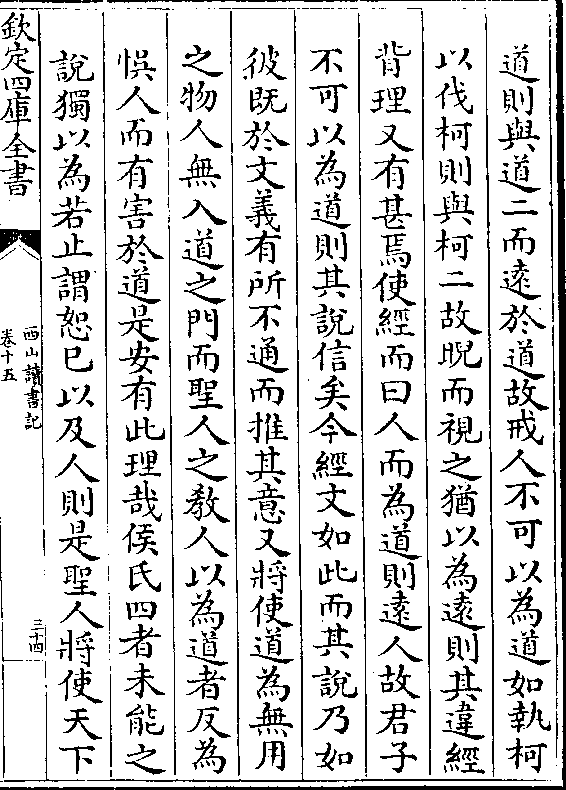 道則與道二而遠於道故戒人不可以為道如執柯
以伐柯則與柯二故睨而視之猶以為遠則其違經
背理又有甚焉使經而曰人而為道則遠人故君子
不可以為道則其說信矣今經文如此而其說乃如
彼既於文義有所不通而推其意又將使道為無用
之物人無入道之門而聖人之教人以為道者反為
悞人而有害於道是安有此理哉侯氏四者未能之
說獨以為若止謂恕已以及人則是聖人將使天下
欽定四庫全書
西山讀書記
卷十五
三十四